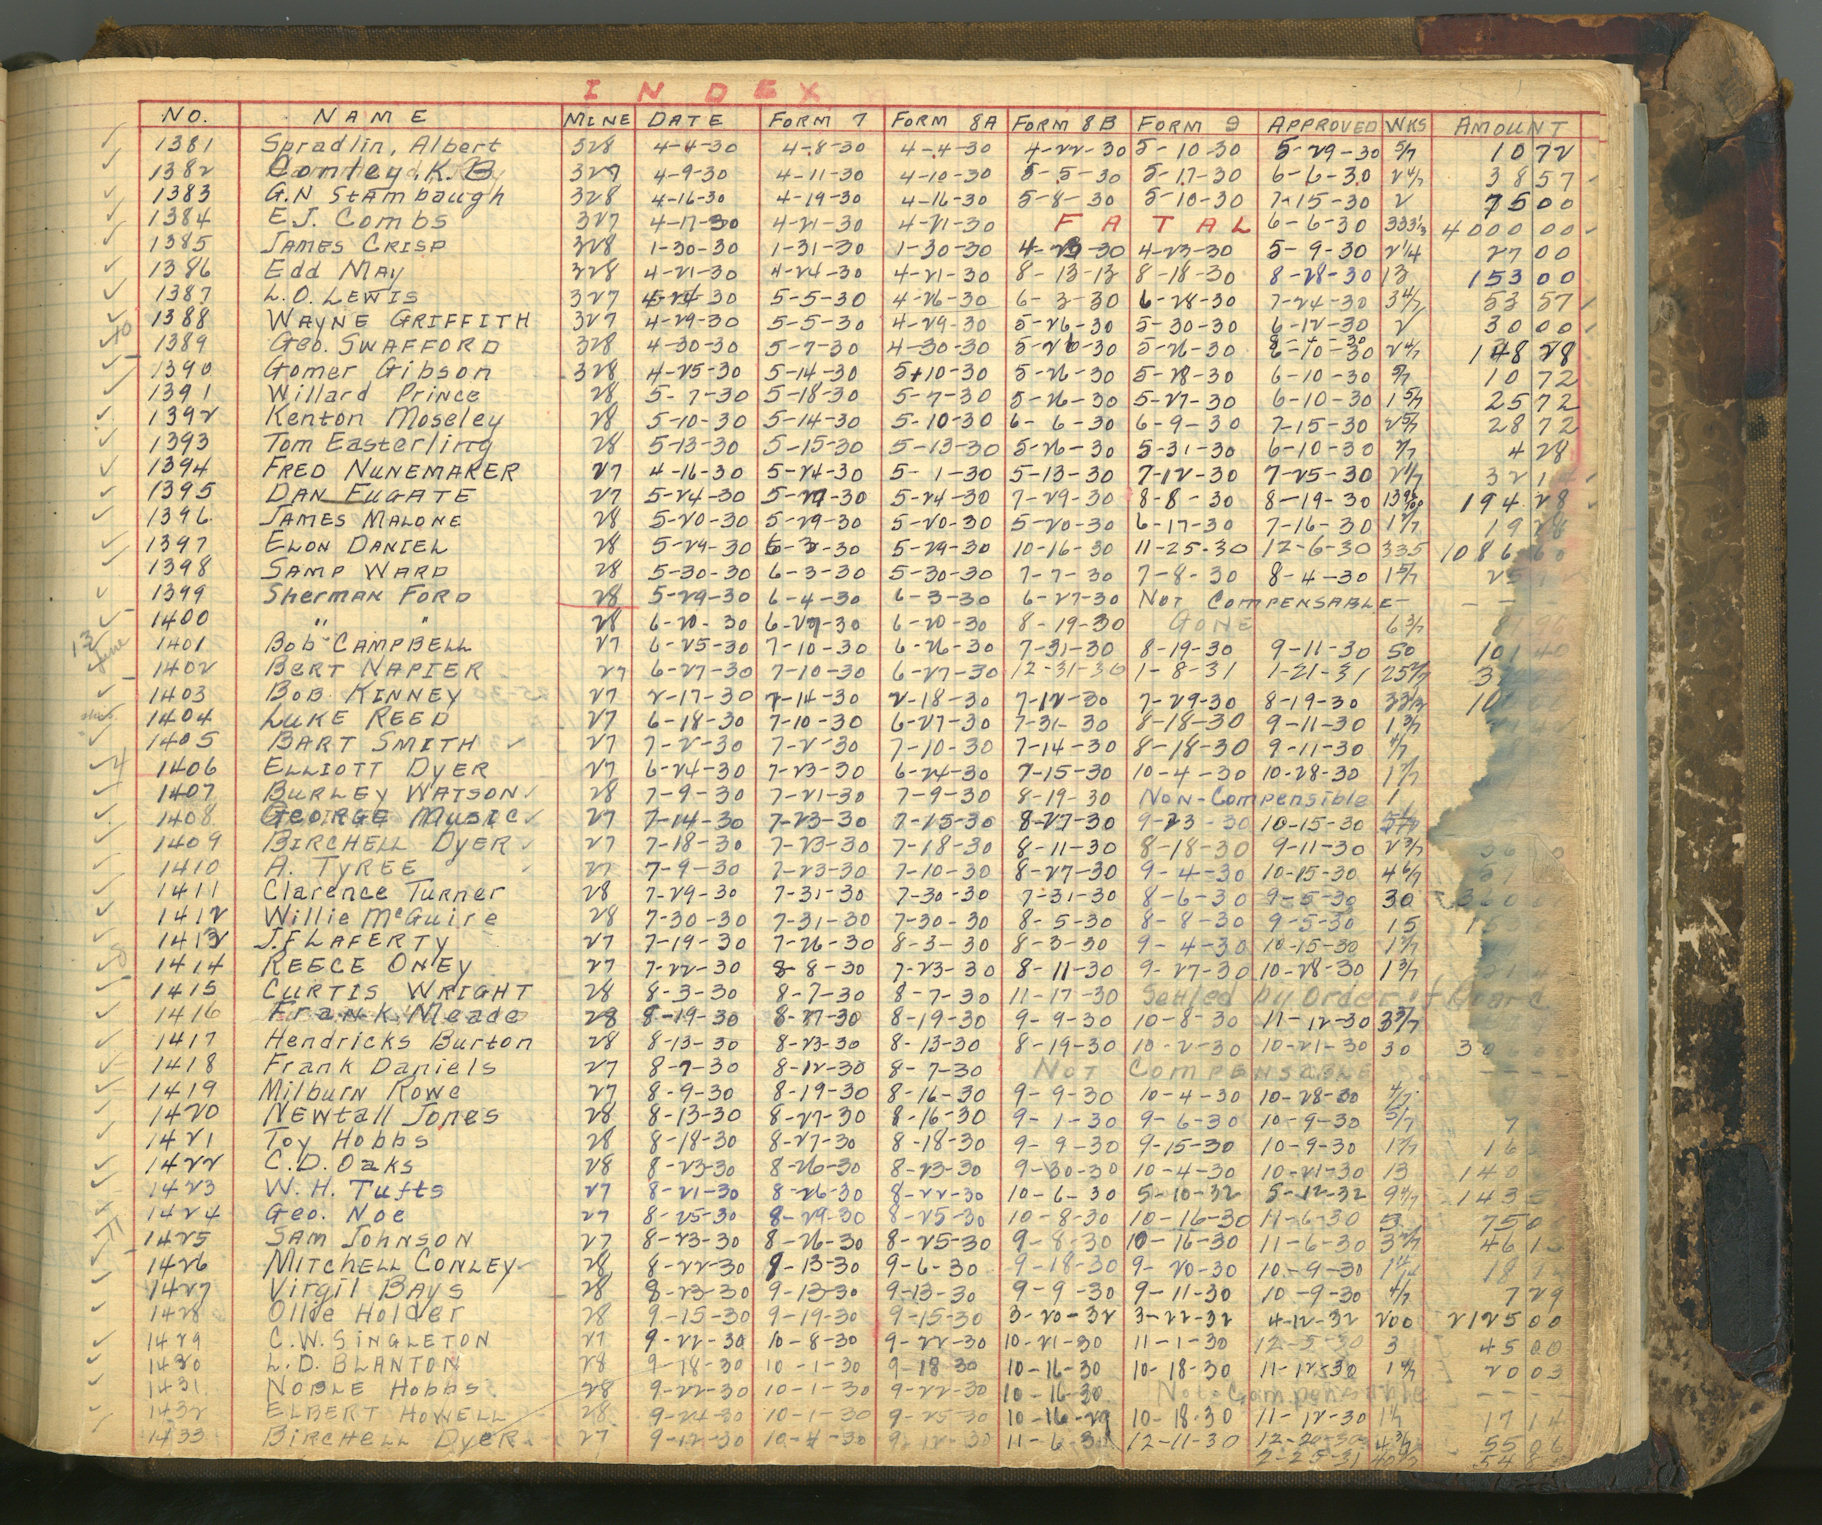 INDEX
NO. NAME MINE DATE FORM 7 FORM 8A FORM 8B FORM 9 APPROVED WKS AMOUNT
1381 Spradlin, Albert 328 4-4-30 4-8-30 4-4-30 4-22-30 5-10-30 5-29-30 5/7 10 72
1382 Conley, K. B. 327 4-9-30 4-11-30 4-10-30 5-5-30 5-17-30 6-6-30 2 4/7 38 57
1383 G.N Stambaugh 328 4-16-30 4-19-30 4-16-30 5-8-30 5-10-30 7-15-30 2 75 00
1384 E.J. Combs 327 4-17-30 4-21-30 4-21-30 FATAL 6-6-30 333 1/3 4000 00
1385 JAMES CRISP 328 1-30-30 1-31-30 1-30-30 4-23-30 4-23-30 5-9-30 2 1/4 27 00
1386 Edd May 328 4-21-30 4-24-30 4-21-30 8-13-13 8-18-30 8-28-30 13 153 00
1387 L.O. LEWIS 327 4-24-30 5-5-30 4-26-30 6-3-30 6-28-30 7-24-30 3 4/7 53 57
1388 WAYNE GRIFFITH 327 4-29-30 5-5-30 4-29-30 5-26-30 5-30-30 6-12-30 2 30 00
1389 Geo. SWAFFORD 328 4-30-30 5-7-30 4-30-30 5-26-30 5-26-30 6-10-30 2 4/7 148 28
1390 Gomer Gibson 328 4-25-30 5-14-30 5-10-30 5-26-30 5-28-30 6-10-30 5/7 10 72
1391 Willard Prince 28 5-7-30 5-18-30 5-7-30 5-26-30 5-27-30 6-10-30 1 5/7 25 72
1392 Kenton Moseley 28 5-10-30 5-14-30 5-10-30 6-6-30 6-9-30 7-15-30 2 5/7 28 72
1393 Tom Easterling 28 5-13-30 5-15-30 5-13-30 5-26-30 5-31-30 6-10-30 2/7 4 28
1394 FRED NUNEMAKER 27 4-16-30 5-24-30 5-1-30 5-13-30 7-12-30 7-25-30 2 1/7 32 14
1395 DAN FUGATE 27 5-24-30 5-29-30 5-24-30 7-29-30 8-8-30 8-19-30 194 28
1396 JAMES MALONE 28 5-20-30 5-29-30 5-20-30 5-20-30 6-17-30 7-16-30 1 2/7 19 28
1397 ELON DANIEL 28 5-29-30 6-2-30 5-29-30 10-16-30 11-25-30 12-6-30 335 1086 60
1398 SAMP WARD 28 5-30-30 6-3-30 5-30-30 7-7-30 7-8-30 8-4-30 1 5/7 25
1399 Sherman FORD 28 5-29-30 6-4-30 6-3-30 6-27-30 NOT COMPENSABLE
1400 " " 28 6-20-30 6-27-30 6-20-30 8-19-30 GONE 6 3/7
13 June 1401 Bob CAMPBELL 27 6-25-30 7-10-30 6-26-30 7-31-30 8-19-30 9-11-30 50 101 40
1402 BERT NAPIER 27 6-27-30 7-10-30 6-27-30 12-31-30 1-8-31 1-21-31 25 2/7
1403 BOB. KINNEY 27 2-17-30 2-14-30 2-18-30 7-12-30 7-29-30 8-19-30 33 1/3
1404 LUKE REED 27 6-18-30 7-10-30 6-27-30 7-31-30 8-18-30 9-11-30 1 3/7
1405 BART SMITH 27 7-2-30 7-2-30 7-10-30 7-14-30 8-18-30 9-11-30 4/7
1406 ELLIOTT DYER 27 6-24-30 7-23-30 6-24-30 7-15-30 10-4-30 10-28-30 1 2/7
1407 BURLEY WATSON 28 7-9-30 7-21-30 7-9-30 8-19-30 Non-Compensible 1
1408 GEORGE MUSIC 27 7-14-30 7-23-30 7-15-30 8-27-30 9-23-30 10-15-30
1409 BIRCHELL DYER 27 7-18-30 7-23-30 7-18-30 8-11-30 8-18-30 9-11-30 2 3/7
1410 A. TYREE 27 7-9-30 7-23-30 7-10-30 8-27-30 9-4-30 10-15-30 4 6/7
1411 Clarence Turner 28 7-29-30 7-31-30 7-30-30 7-31-30 8-6-30 9-5-30 30
1412 Willie McGuire 28 7-30-30 7-31-30 7-30-30 8-5-30 8-8-30 9-5-30 15
1413 J.F LAFERTY 27 7-19-30 7-26-30 8-3-30 8-3-30 9-4-30 10-15-30 1 2/7
1414 REECE ONEY 27 7-22-30 8-8-30 7-23-30 8-11-30 9-27-30 10-28-30 1 3/7
1415 CURTIS WRIGHT 28 8-3-30 8-7-30 8-7-30 11-17-30 Settled by Order of Board
1416 Frank Meade 28 8-19-30 8-27-30 8-19-30 9-9-30 10-8-30 11-12-30 3 3/7
1417 Hendricks Burton 28 8-13-30 8-23-30 8-13-30 8-19-30 10-2-30 10-21-30 30
1418 Frank Daniels 27 8-7-30 8-12-30 8-7-30 NOT COMPENSABLE
1419 Milburn Rowe 27 8-9-30 8-19-30 8-16-30 9-9-30 10-4-30 10-28-30 4/7
1420 NEWtall Jones 28 8-13-30 8-27-30 8-16-30 9-1-30 9-6-30 10-9-30 5/7
1421 Toy Hobbs 28 8-18-30 8-27-30 8-18-30 9-9-30 9-15-30 10-9-30 1 2/7
1422 C.D. Oaks 28 8-23-30 8-26-30 8-23-30 9-30-30 10-4-30 10-21-30 13 140
1423 W. H. Tufts 27 8-21-30 8-26-30 8-22-30 10-6-30 5-10-32 5-12-32 9 4/7 143
1424 Geo. Noe 27 8-25-30 8-29-30 8-25-30 10-8-30 10-16-30 11-6-30 5 75 0
1425 SAM JOHNSON 27 8-23-30 8-26-30 8-25-30 9-8-30 10-16-30 11-6-30 3 2/7 46 1
1426 MITCHELL CONLEY 28 8-22-30 9-13-30 9-6-30 9-18-30 9-20-30 10-9-30 18 1
1427 Virgil BAYS 28 8-23-30 9-13-30 9-13-30 9-9-30 9-11-30 10-9-30 4/7 7 29
1428 Ollie Holder 28 9-15-30 9-19-30 9-15-30 3-20-32 3-22-32 4-12-32 200 2125 00
1429 C.W. SINGLETON 27 9-22-30 10-8-30 9-22-30 10-21-30 11-1-30 12-5-30 3 45 00
1430 L.D. BLANTON 28 9-18-30 10-1-30 9-18-30 10-16-30 10-18-30 11-12-30 1 4/7 20 03
1431 NOBLE Hobbs 28 9-22-30 10-1-30 9-22-30 10-16-30 Not-Compensable
1432 ELBERT HOWELL 28 9-24-30 10-1-30 9-25-30 10-16-29 10-18-30 11-12-30 1 1/7 17 14
1433 BIRCHELL DYER 27 9-12-30 10-4-30 9-12-30 11-6-30 12-11-30 12-20-30 4 3/7 55 06
2-25-31 54 8